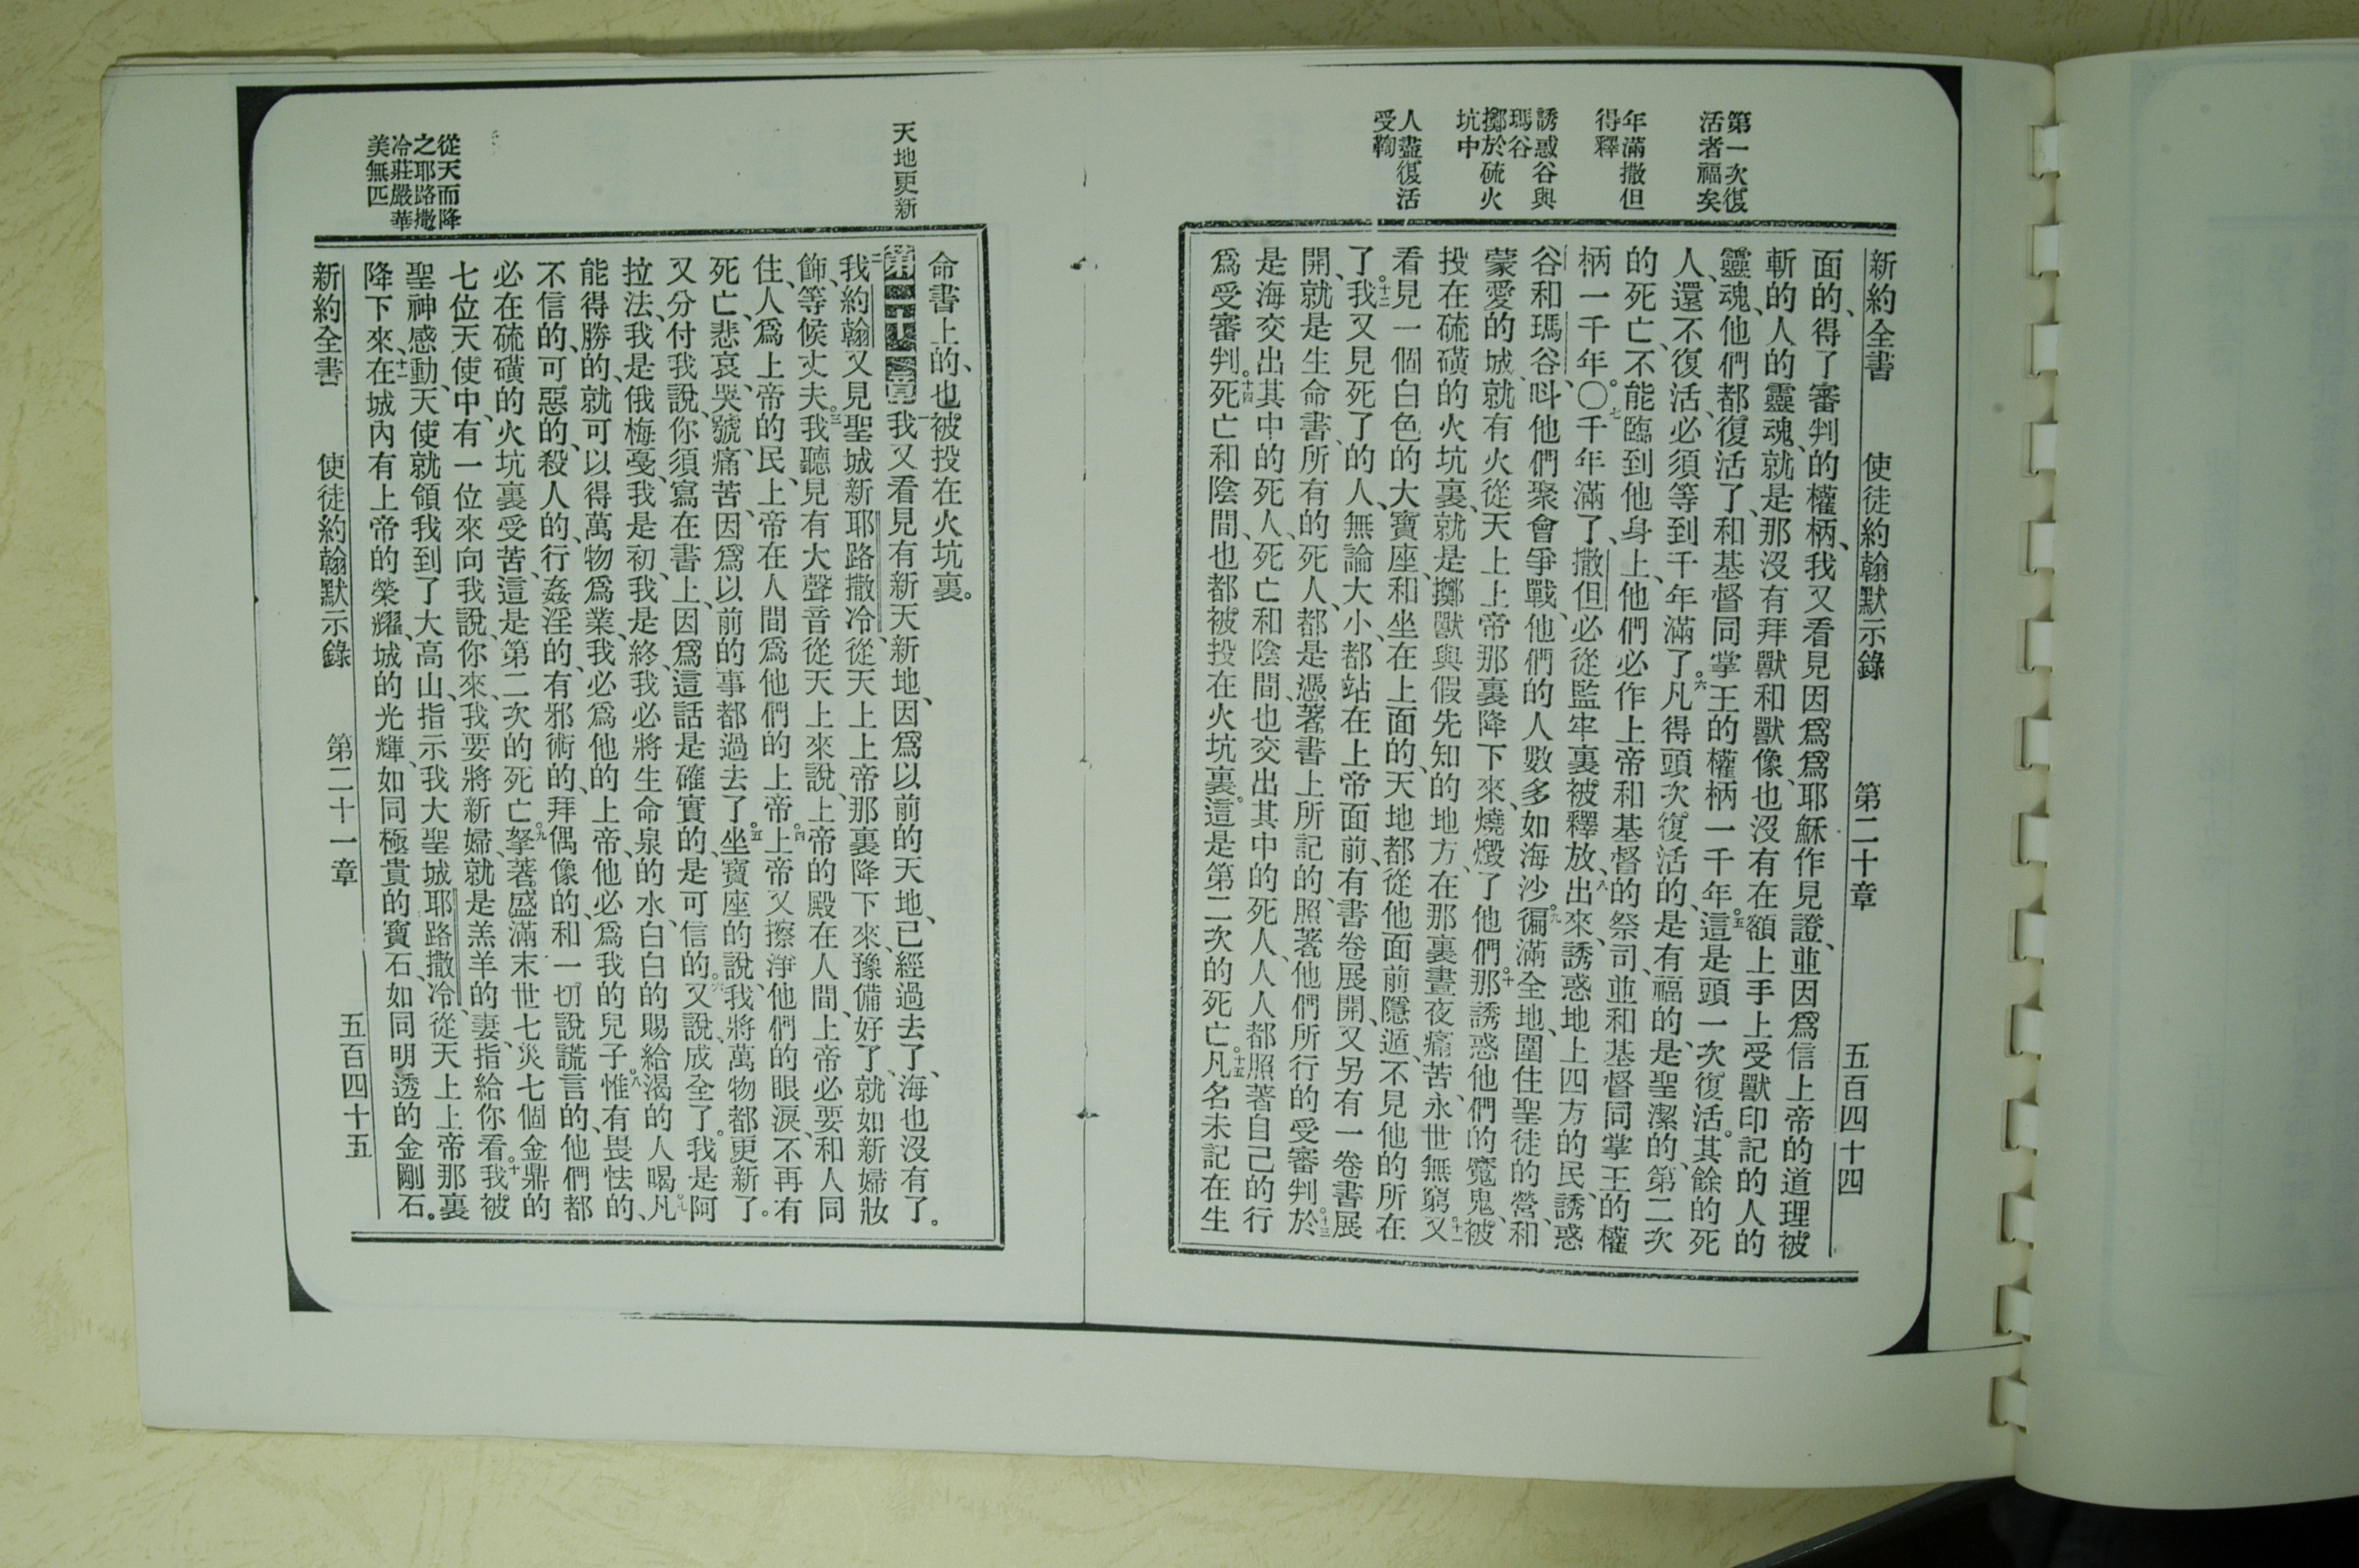 第一次復
活者福矣
年滿撒但
得釋
誘惑谷與
瑪谷
擲於硫火
坑中
人盡復活
受鞫
新約全書 使徒約翰默示錄 第二十章 五百四十四
面的、得了審判的權柄、我又看見因爲爲耶穌作見證、並因爲信上帝的道理、被
斬的人的靈魂、就是那沒有拜獸和獸像、也沒有在額上手上受獸印記的人的
靈魂、他們都復活了、和基督同掌王的權柄一千年。五這是頭一次復活。其餘的死
人、還不復活、必須等到千年滿了。六凡得頭次復活的、是有福的、是聖潔的、第二次
的死亡、不能臨到他身上、他們必作上帝和基督的祭司、並和基督同掌王的權
柄一千年。〇七千年滿了、撒但必從監牢裏被釋放、八出來、誘惑地上四方的民、誘惑
谷和瑪谷、呌他們聚會爭戰、他們的人數多如海沙。九徧滿全地、圍住聖徒的營、和
蒙愛的城、就有火從天上上帝那裏降下來、燒燬了他們。十那誘惑他們的魔鬼、被
投在硫磺的火坑裏、就是擲獸與假先知的地方、在那裏晝夜痛苦、永世無窮。十一又
看見一個白色的大寶座、和坐在上面的、天地都從他面前隱遁、不見他的所在
了。十二我又見死了的人、無論大小、都站在上帝面前、有書卷展開、又另有一卷書展
開、就是生命書、所有的死人、都是憑著書上所記的、照著他們所行的受審判。十三於
是海交出其中的死人、死亡和陰間、也交出其中的死人、人人都照著自己的行
爲受審判。十四死亡和陰間也都被投在火坑裏。這是第二次的死亡。十五凡名未記在生
天地更新
從天而降
之耶路撒
冷莊嚴華
美無匹
命書上的、也被投在火坑裏。
第二十一章 一我又看見有新天新地、因爲以前的天地、已經過去了、海也沒有了。
二我約翰又見聖城新耶路撒冷、從天上上帝那裏降下來、豫備好了、就如新婦妝
飾、等候丈夫。三我聽見有大聲音從天上來說、上帝的殿在人間、上帝必要和人同
住、人爲上帝的民、上帝在人間爲他們的上帝。四上帝又擦淨他們的眼淚、不再有
死亡、悲哀、哭號、痛苦、因爲以前的事都過去了。五坐寶座的說、我將萬物都更新了。
又分付我說、你須寫在書上、因爲這話是確實的、是可信的。六又說、成全了。我是阿
拉法、我是俄梅戛、我是初、我是終、我必將生命泉的水、白白的賜給渴的人喝。七凡
能得勝的、就可以得萬物爲業、我必爲他的上帝、他必爲我的兒子。八惟有畏怯的、
不信的、可惡的、殺人的、行姦淫的、有邪術的、拜偶像的、和一切說謊言的、他們都
必在硫磺的火坑裏受苦、這是第二次的死亡。九拏著盛滿末世七災七個金鼎的
七位天使中、有一位來向我說、你來、我要將新婦、就是羔羊的妻、指給你看。十我被
聖神感動、天使就領我到了大高山、指示我大聖城耶路撒冷、從天上上帝那裏
降下來、十一在城內有上帝的榮耀、城的光輝、如同極貴的寶石、如同明透的金剛石。
新約全書 使徒約翰默示錄 第二十一章 五百四十五